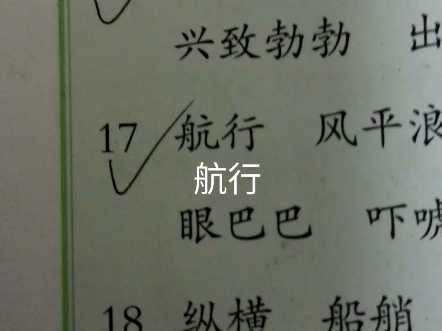 兴致勃勃 出
17 航行 风平浪
航行
眼巴巴 吓唬
18 纵横 船艄